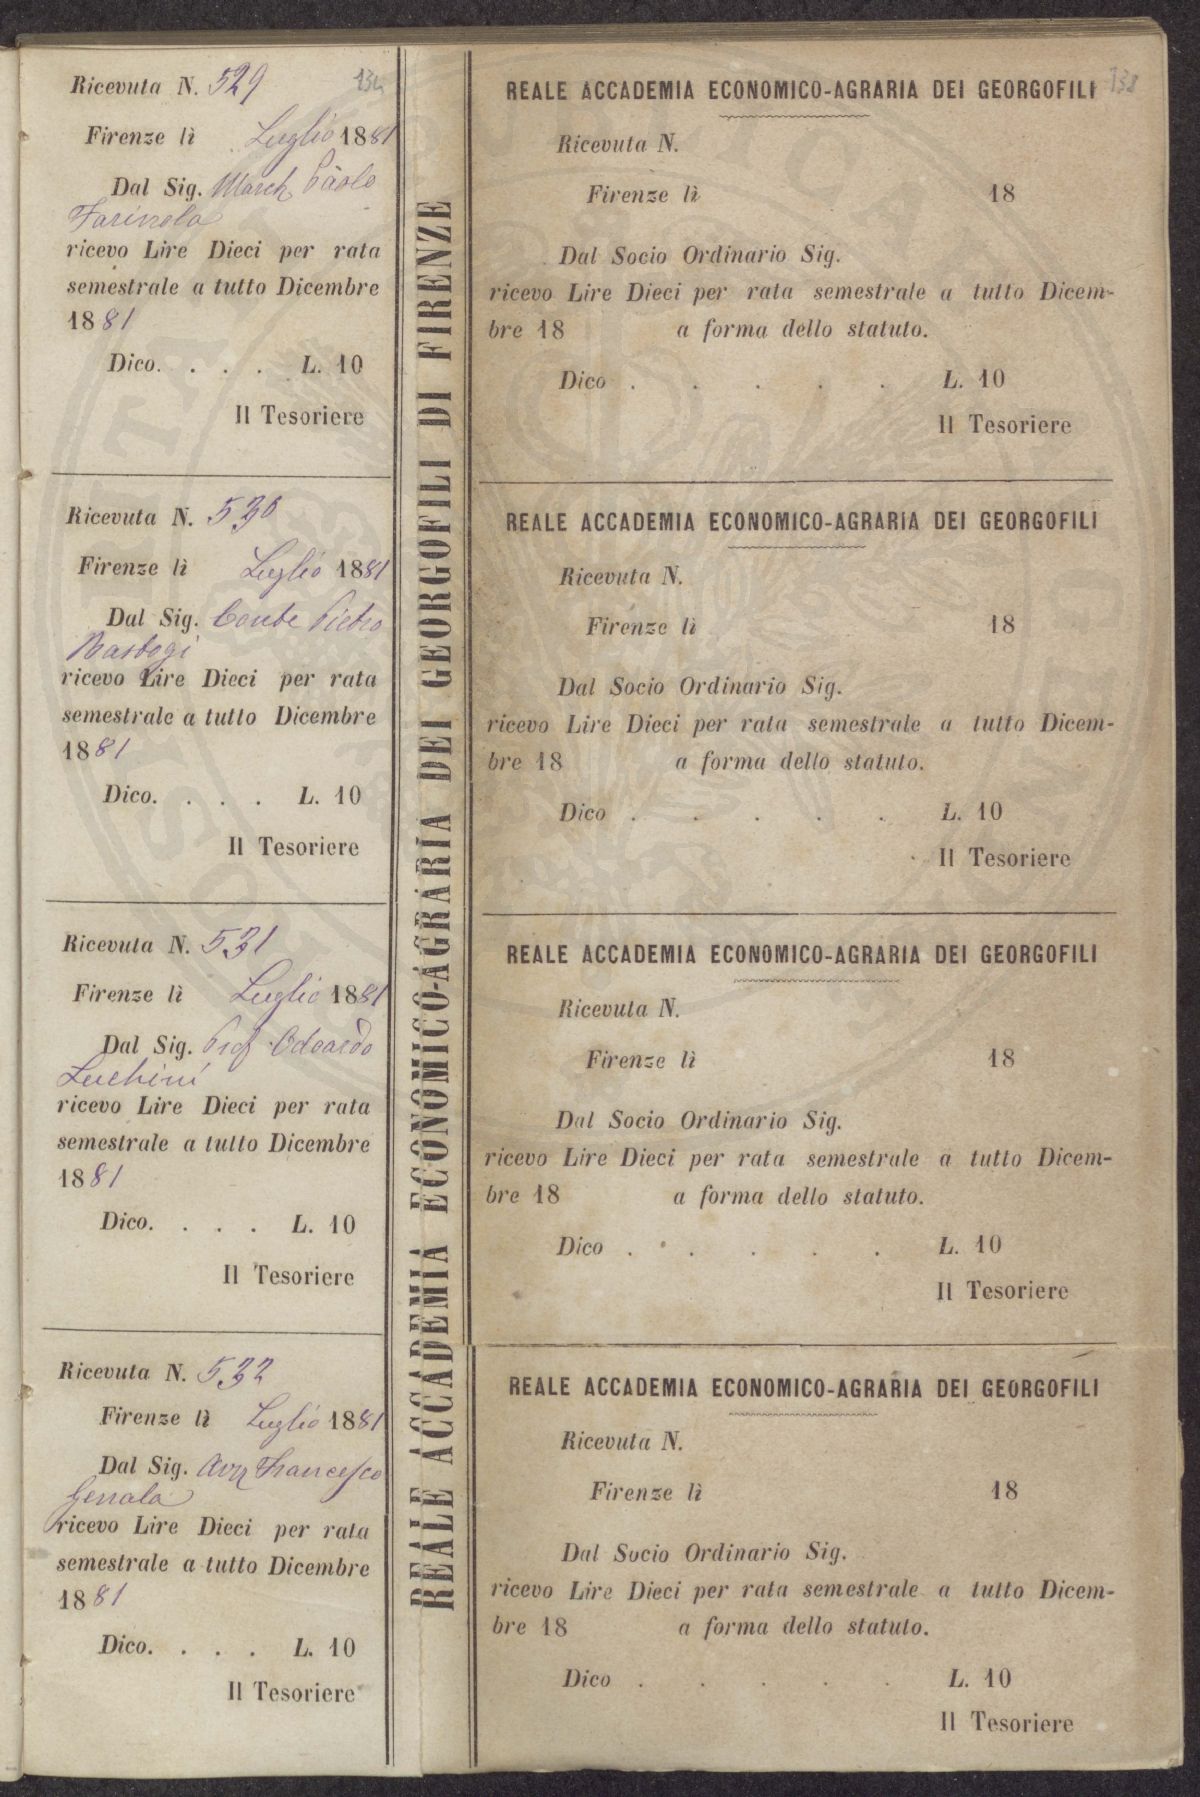 Ricevuta N. 529
134
Firenze lì Luglio 1881
Dal Sig. March. Paolo
Farinola
ricevo Lire Dieci per rata
semestrale a tutto Dicembre
1881
Dico. . . . L. 10
Il Tesoriere
Ricevuta N. 530
Firenze lì Luglio 1881
Dal Sig. Conte Pietro
Bastogi
ricevo Lire Dieci per rata
semestrale a tutto Dicembre
1881
Dico. . . . L. 10
Il Tesoriere
Ricevuta N. 531
Firenze lì Luglio 1881
Dal Sig. Prof. Odoardo
Luchini
ricevo Lire Dieci per rata
semestrale a tutto Dicembre
1881
Dico. . . . L. 10
Il Tesoriere
Ricevuta N. 532
Firenze lì Luglio 1881
Dal Sig. Avv Francesco
Genala
ricevo Lire Dieci per rata
semestrale a tutto Dicembre
1881
Dico. . . . L. 10
Il Tesoriere
REALE ACCADEMIA ECONOMICO-AGRARIA DEI GEORGOFILI DI FIRENZE
REALE ACCADEMIA ECONOMICO-AGRARIA DEI GEORGOFILI
138
Ricevuta N.
Firenze lì 18
Dal Socio Ordinario Sig.
ricevo Lire Dieci per rata semestrale a tutto Dicem-
bre 18 a forma dello statuto.
Dico . . . . . L. 10
Il Tesoriere
REALE ACCADEMIA ECONOMICO-AGRARIA DEI GEORGOFILI
Ricevuta N.
Firenze lì 18
Dal Socio Ordinario Sig.
ricevo Lire Dieci per rata semestrale a tutto Dicem-
bre 18 a forma dello statuto.
Dico . . . . . L. 10
Il Tesoriere
REALE ACCADEMIA ECONOMICO-AGRARIA DEI GEORGOFILI
Ricevuta N.
Firenze lì 18
Dal Socio Ordinario Sig.
ricevo Lire Dieci per rata semestrale a tutto Dicem-
bre 18 a forma dello statuto.
Dico . . . . . L. 10
Il Tesoriere
REALE ACCADEMIA ECONOMICO-AGRARIA DEI GEORGOFILI
Ricevuta N.
Firenze lì 18
Dal Socio Ordinario Sig.
ricevo Lire Dieci per rata semestrale a tutto Dicem-
bre 18 a forma dello statuto.
Dico . . . . . L. 10
Il Tesoriere